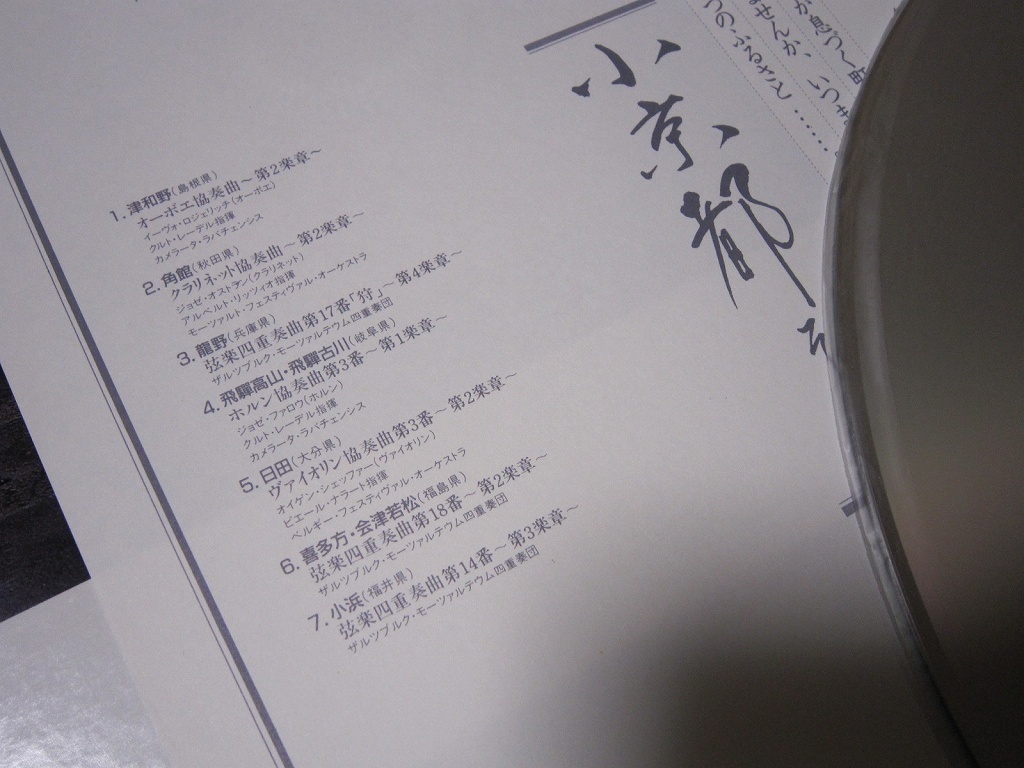 が息づく町
ませんか、いつき
つのふるさと‥‥‥
小京都
1. 津和野(島根県)
オーボエ協奏曲〜第2楽章〜
イーヴォ・ロジェリッチ(オーボエ)
クルト・レーデル指揮
カメラータ・ラバチェンシス
2. 角館(秋田県)
クラリネット協奏曲〜第2楽章〜
ジョゼ・オステン(クラリネット)
アルベルト・リッツィオ指揮
モーツァルト・フェスティヴァル・オーケストラ
3. 龍野(兵庫県)
弦楽四重奏曲第17番「狩」〜第4楽章〜
ザルツブルク・モーツァルテウム四重奏団
4. 飛騨高山・飛騨古川(岐阜県)
ホルン協奏曲第3番〜第1楽章〜
ジョゼ・ファロウ(ホルン)
クルト・レーデル指揮
カメラータ・ラバチェンシス
5. 日田(大分県)
ヴァイオリン協奏曲第3番〜第2楽章〜
オイゲン・シェッファー(ヴァイオリン)
ピエール・ナラート指揮
ベルギー・フェスティヴァル・オーケストラ
6. 喜多方・会津若松(福島県)
弦楽四重奏曲第18番〜第2楽章〜
ザルツブルク・モーツァルテウム四重奏団
7. 小浜(福井県)
弦楽四重奏曲第14番〜第3楽章〜
ザルツブルク・モーツァルテウム四重奏団